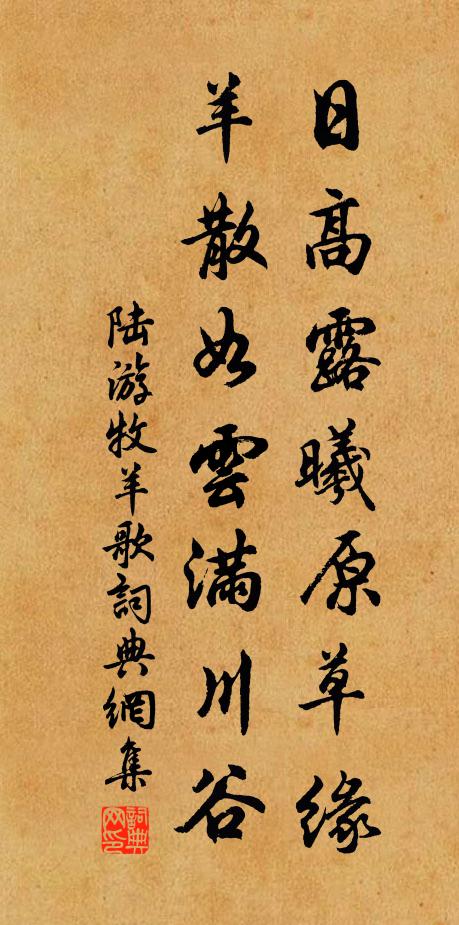 日高露曦原草緣
羊散如雲滿川谷
陸游牧羊歌詞典網集
詞典网印